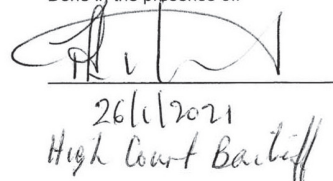 Done in the presence of:
26/1/2021
High Court Bailiff